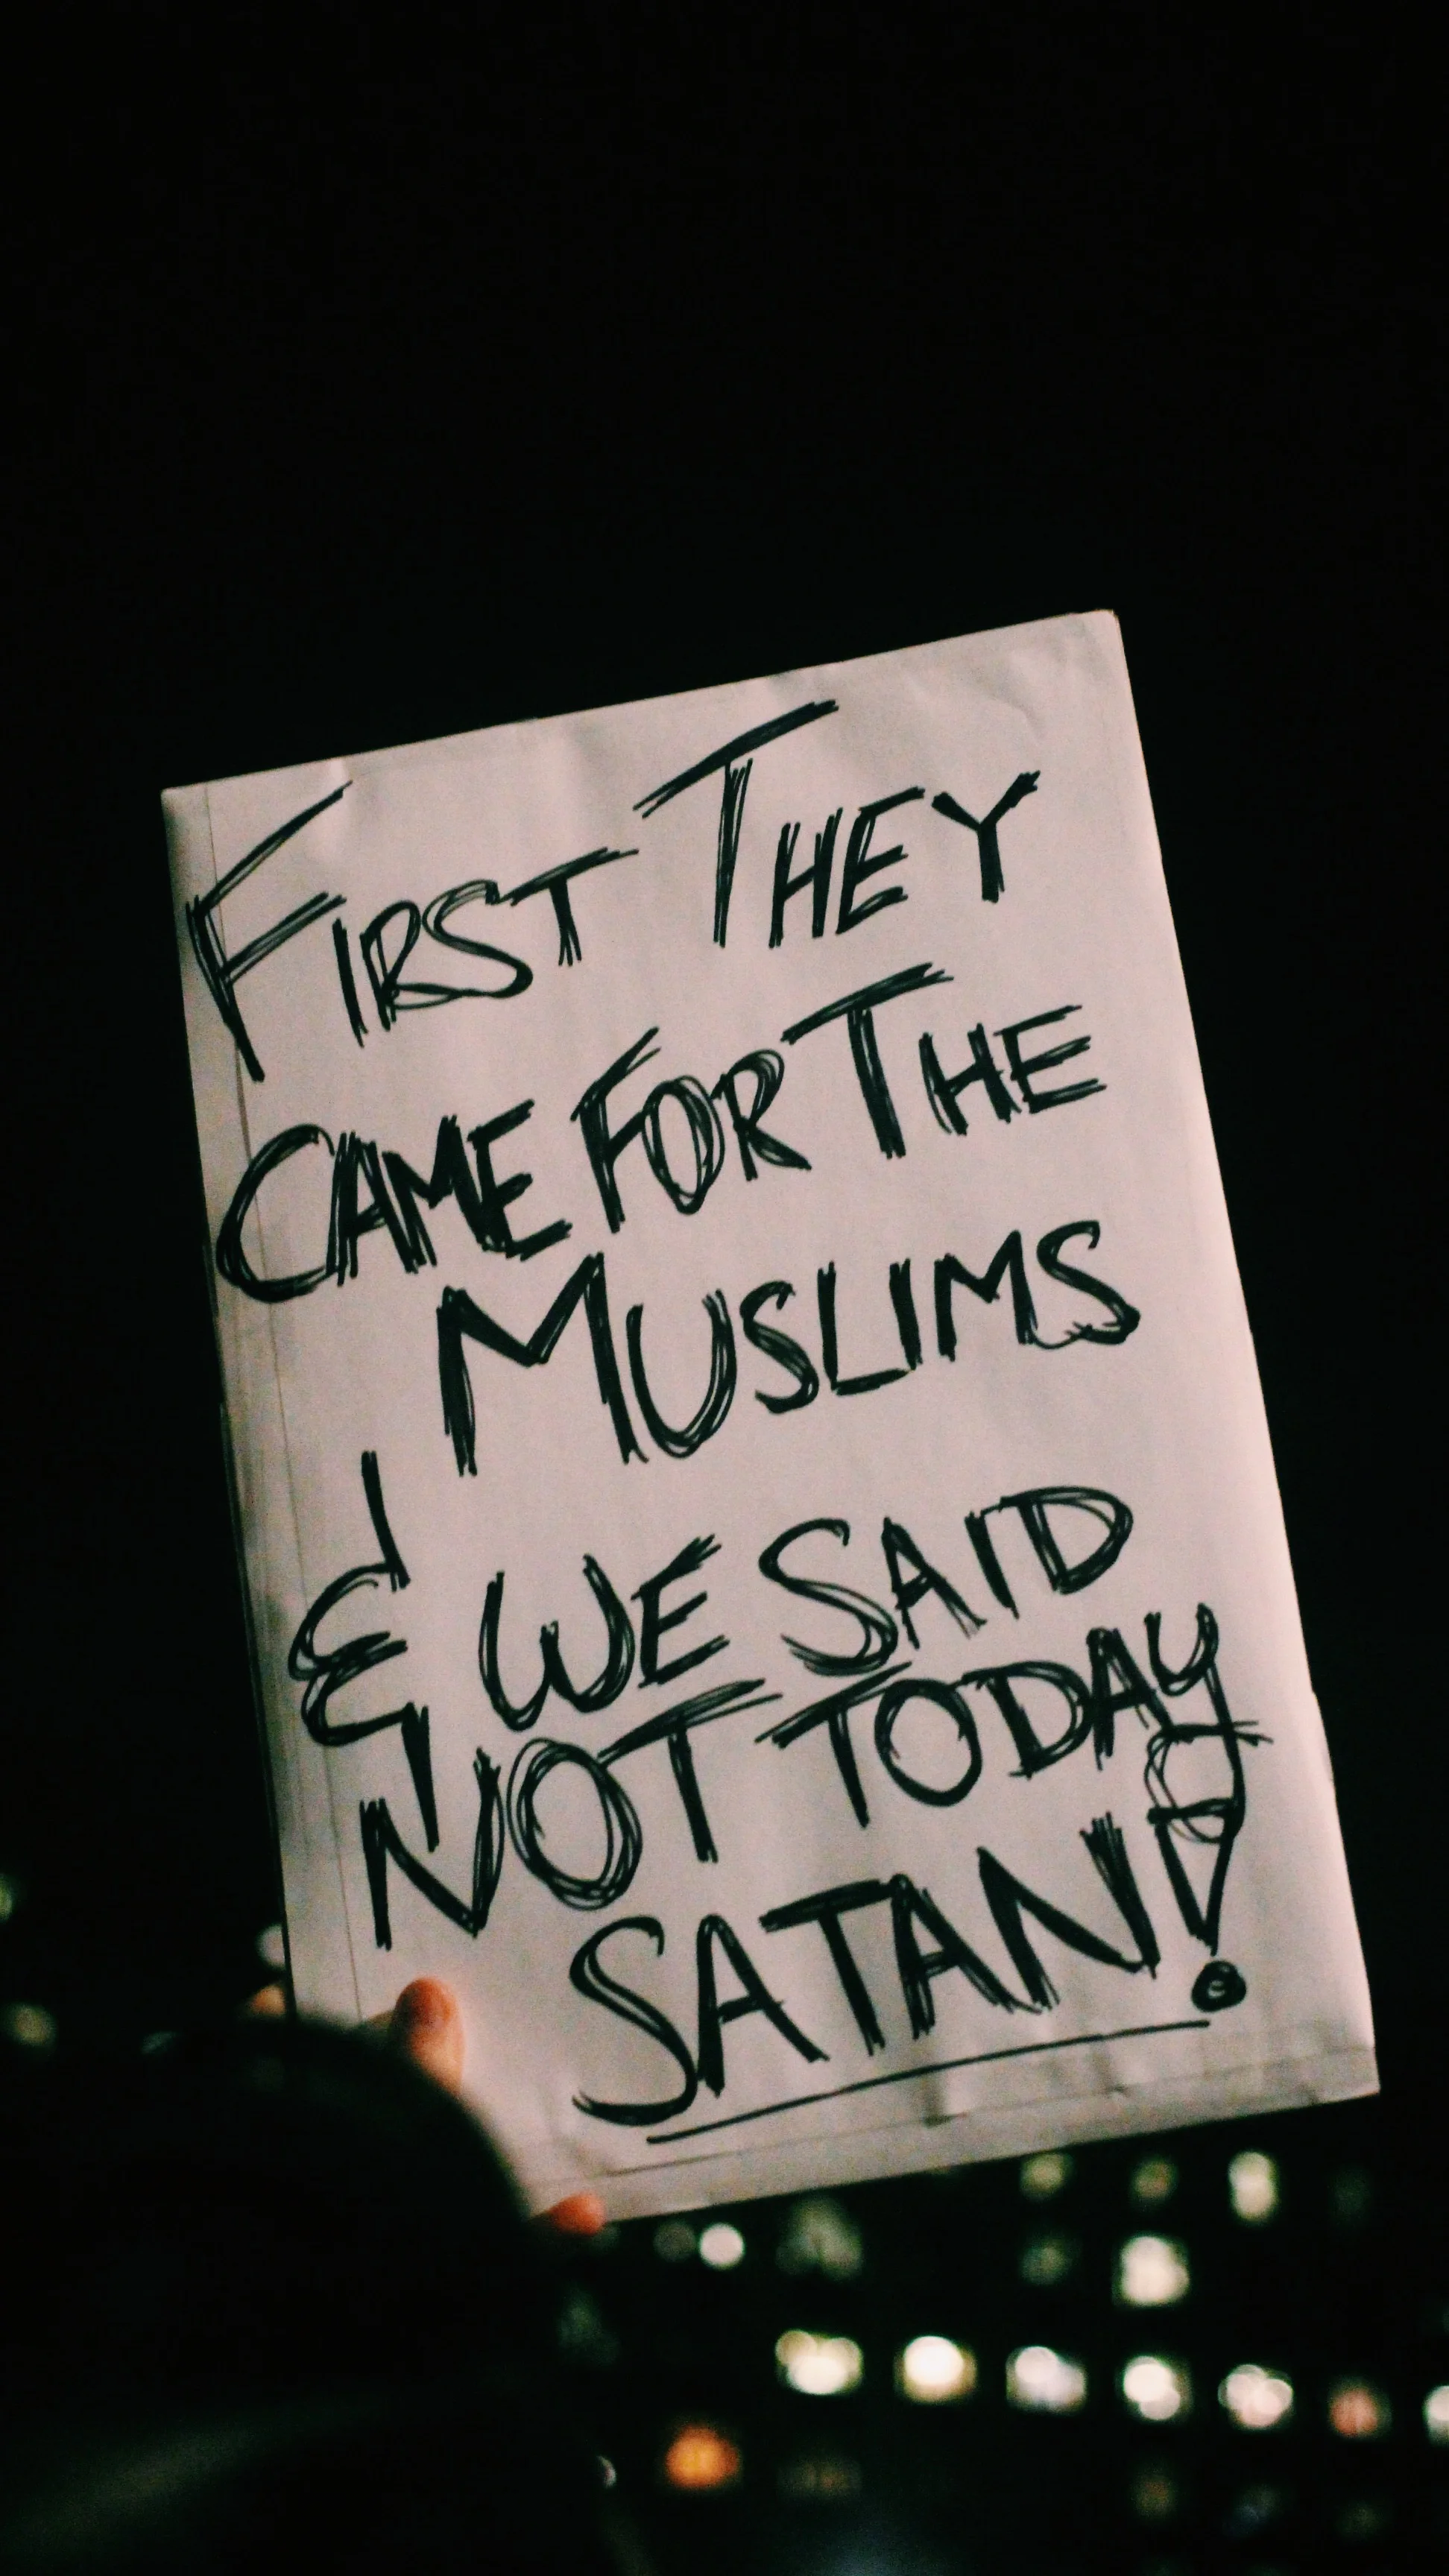 FIRST THEY
CAME FOR THE
MUSLIMS
& WE SAID
NOT TODAY
SATAN!